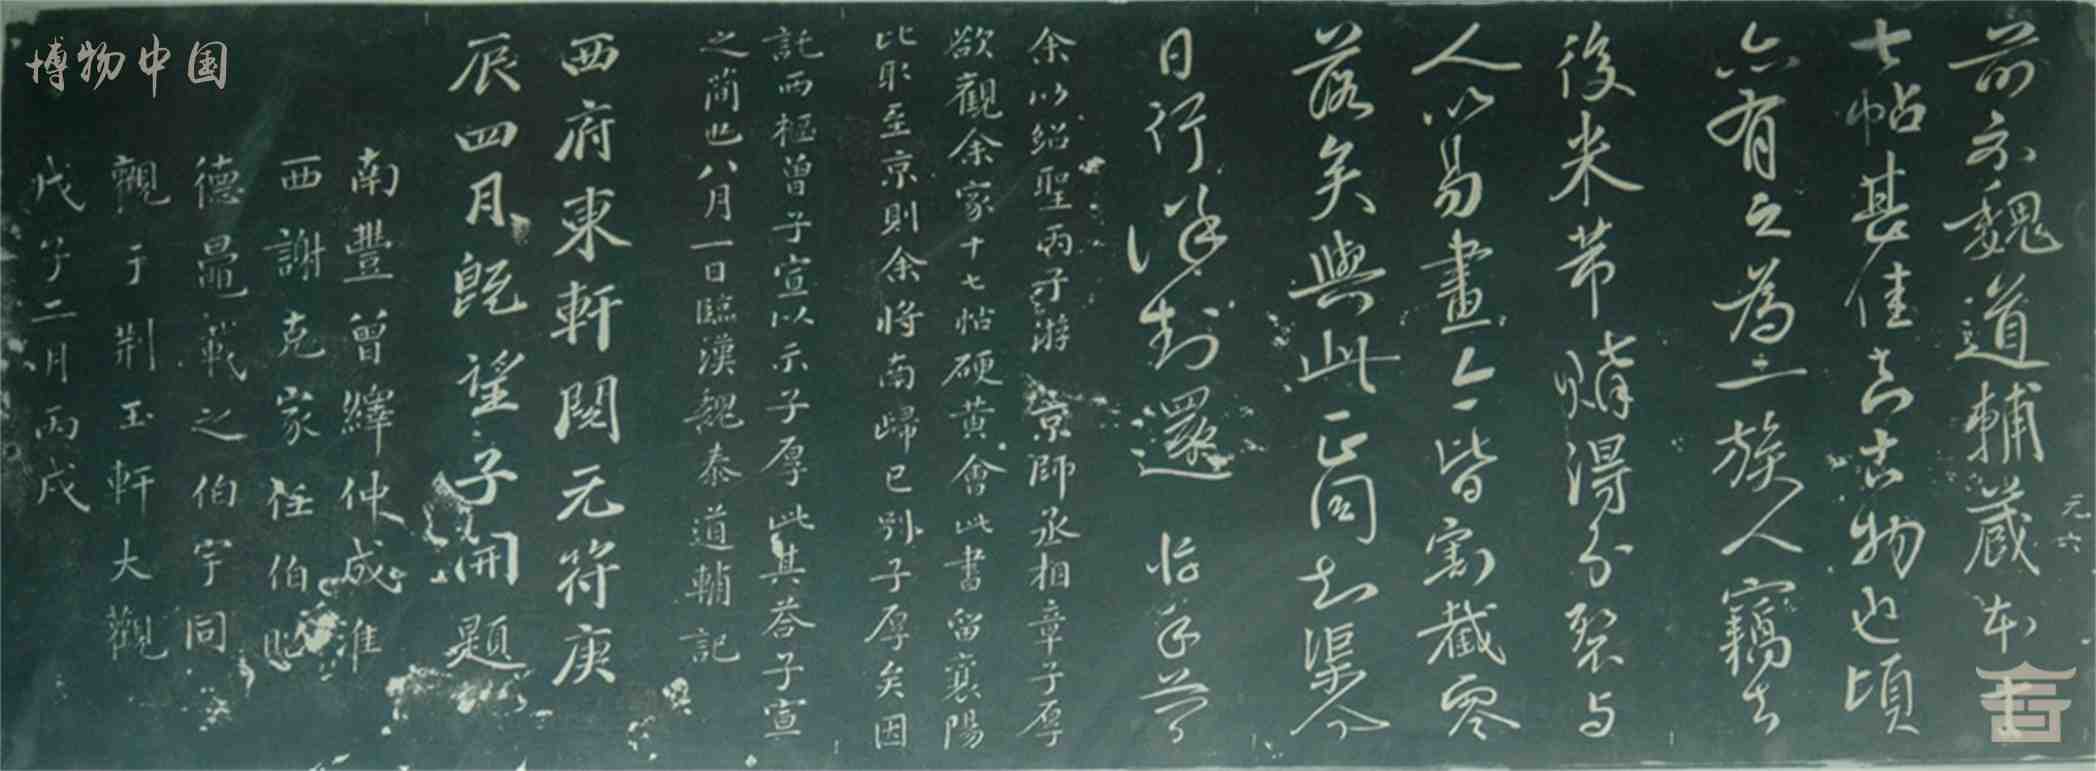 元六
前示魏道輔藏本十
七帖甚佳真古物也頃
亦有之為一族人竊去
後米芾購得分裂与
人以易畫今一皆割截零
落矣與此正同知渠今
日行謹封還 惇手
余以紹聖丙子游 京師丞相章子厚
欲觀余家十七帖硬黄會此書留襄陽
比取至京則余將南歸已別子厚矣因
託西樞曾子宣以示子厚此其荅子宣
之簡也八月一日臨漢魏泰道輔記
西府東軒閱元符庚
辰四月既望子開題
南豐曾繹仲成淮
西謝克家任伯昭
德晁載之伯宇同
觀于荆玉軒大觀
戊子二月丙戌
博物中国